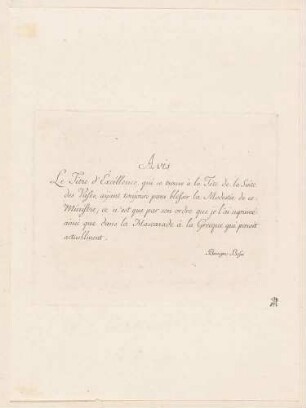 Avis
Le Titre d'Excellence, qui se trouve à la Tête de la Suite
des Vases, ayant toujours paru blesser la Modestie de ce
Ministre, ce n'est que par son ordre que je l'ai
ainsi que dans la Mascarade à la Grecque qui paroit
actuellement.
Benigno Bossi